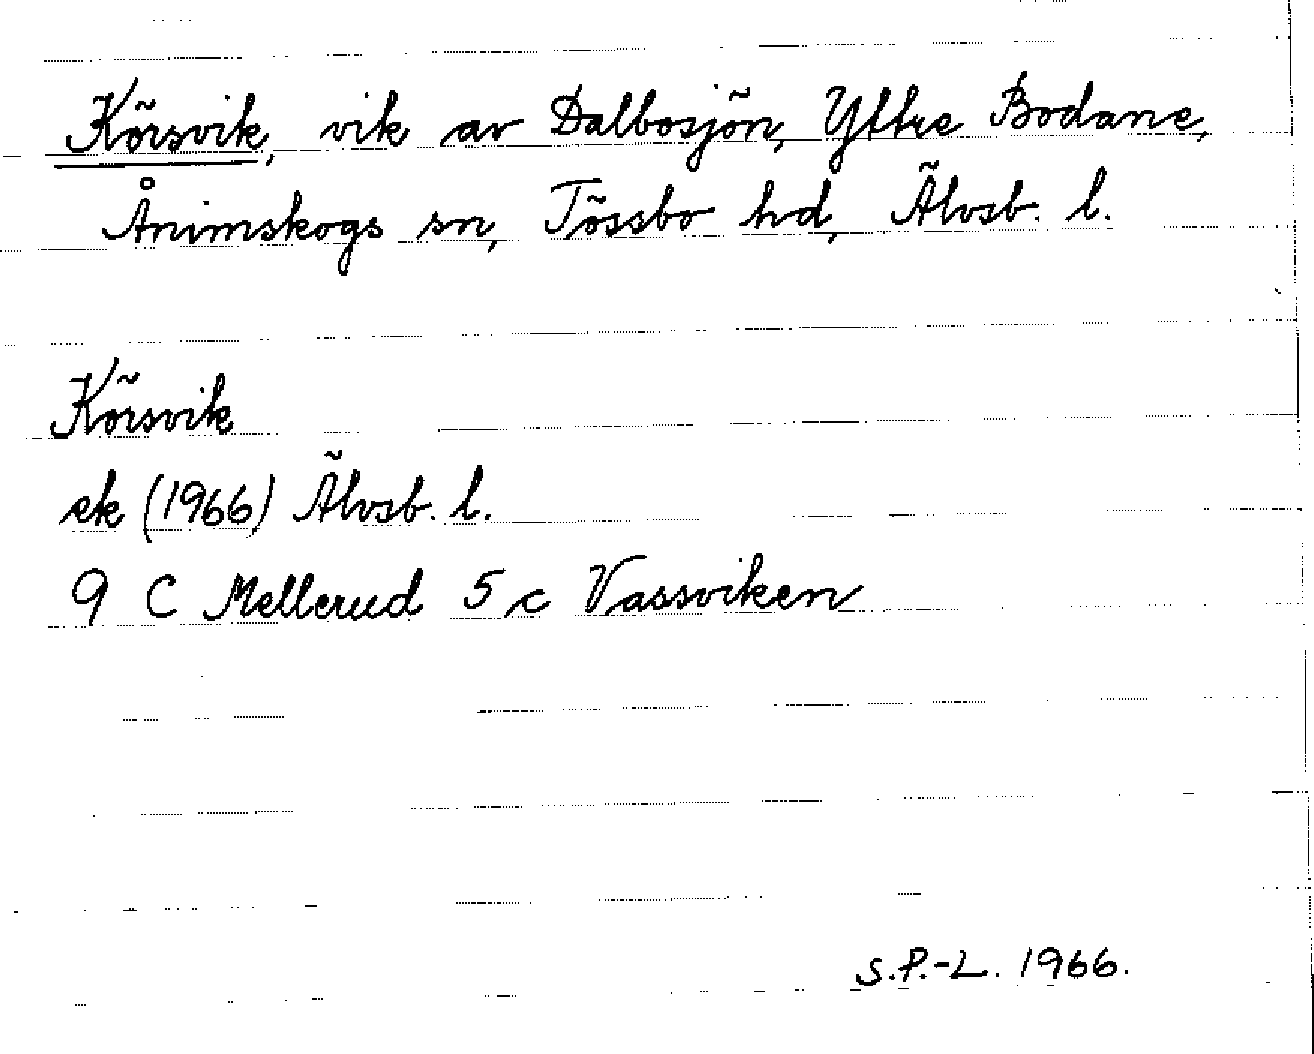 Körsvik, vik av Dalbosjön, Yttre Bodane,
Ånimskogs sn, Tössbo hd, Älvsb. l.
Körsvik
ek (1966) Älvsb. l.
9 C Mellerud 5 c Vassviken
S.P.-L. 1966.